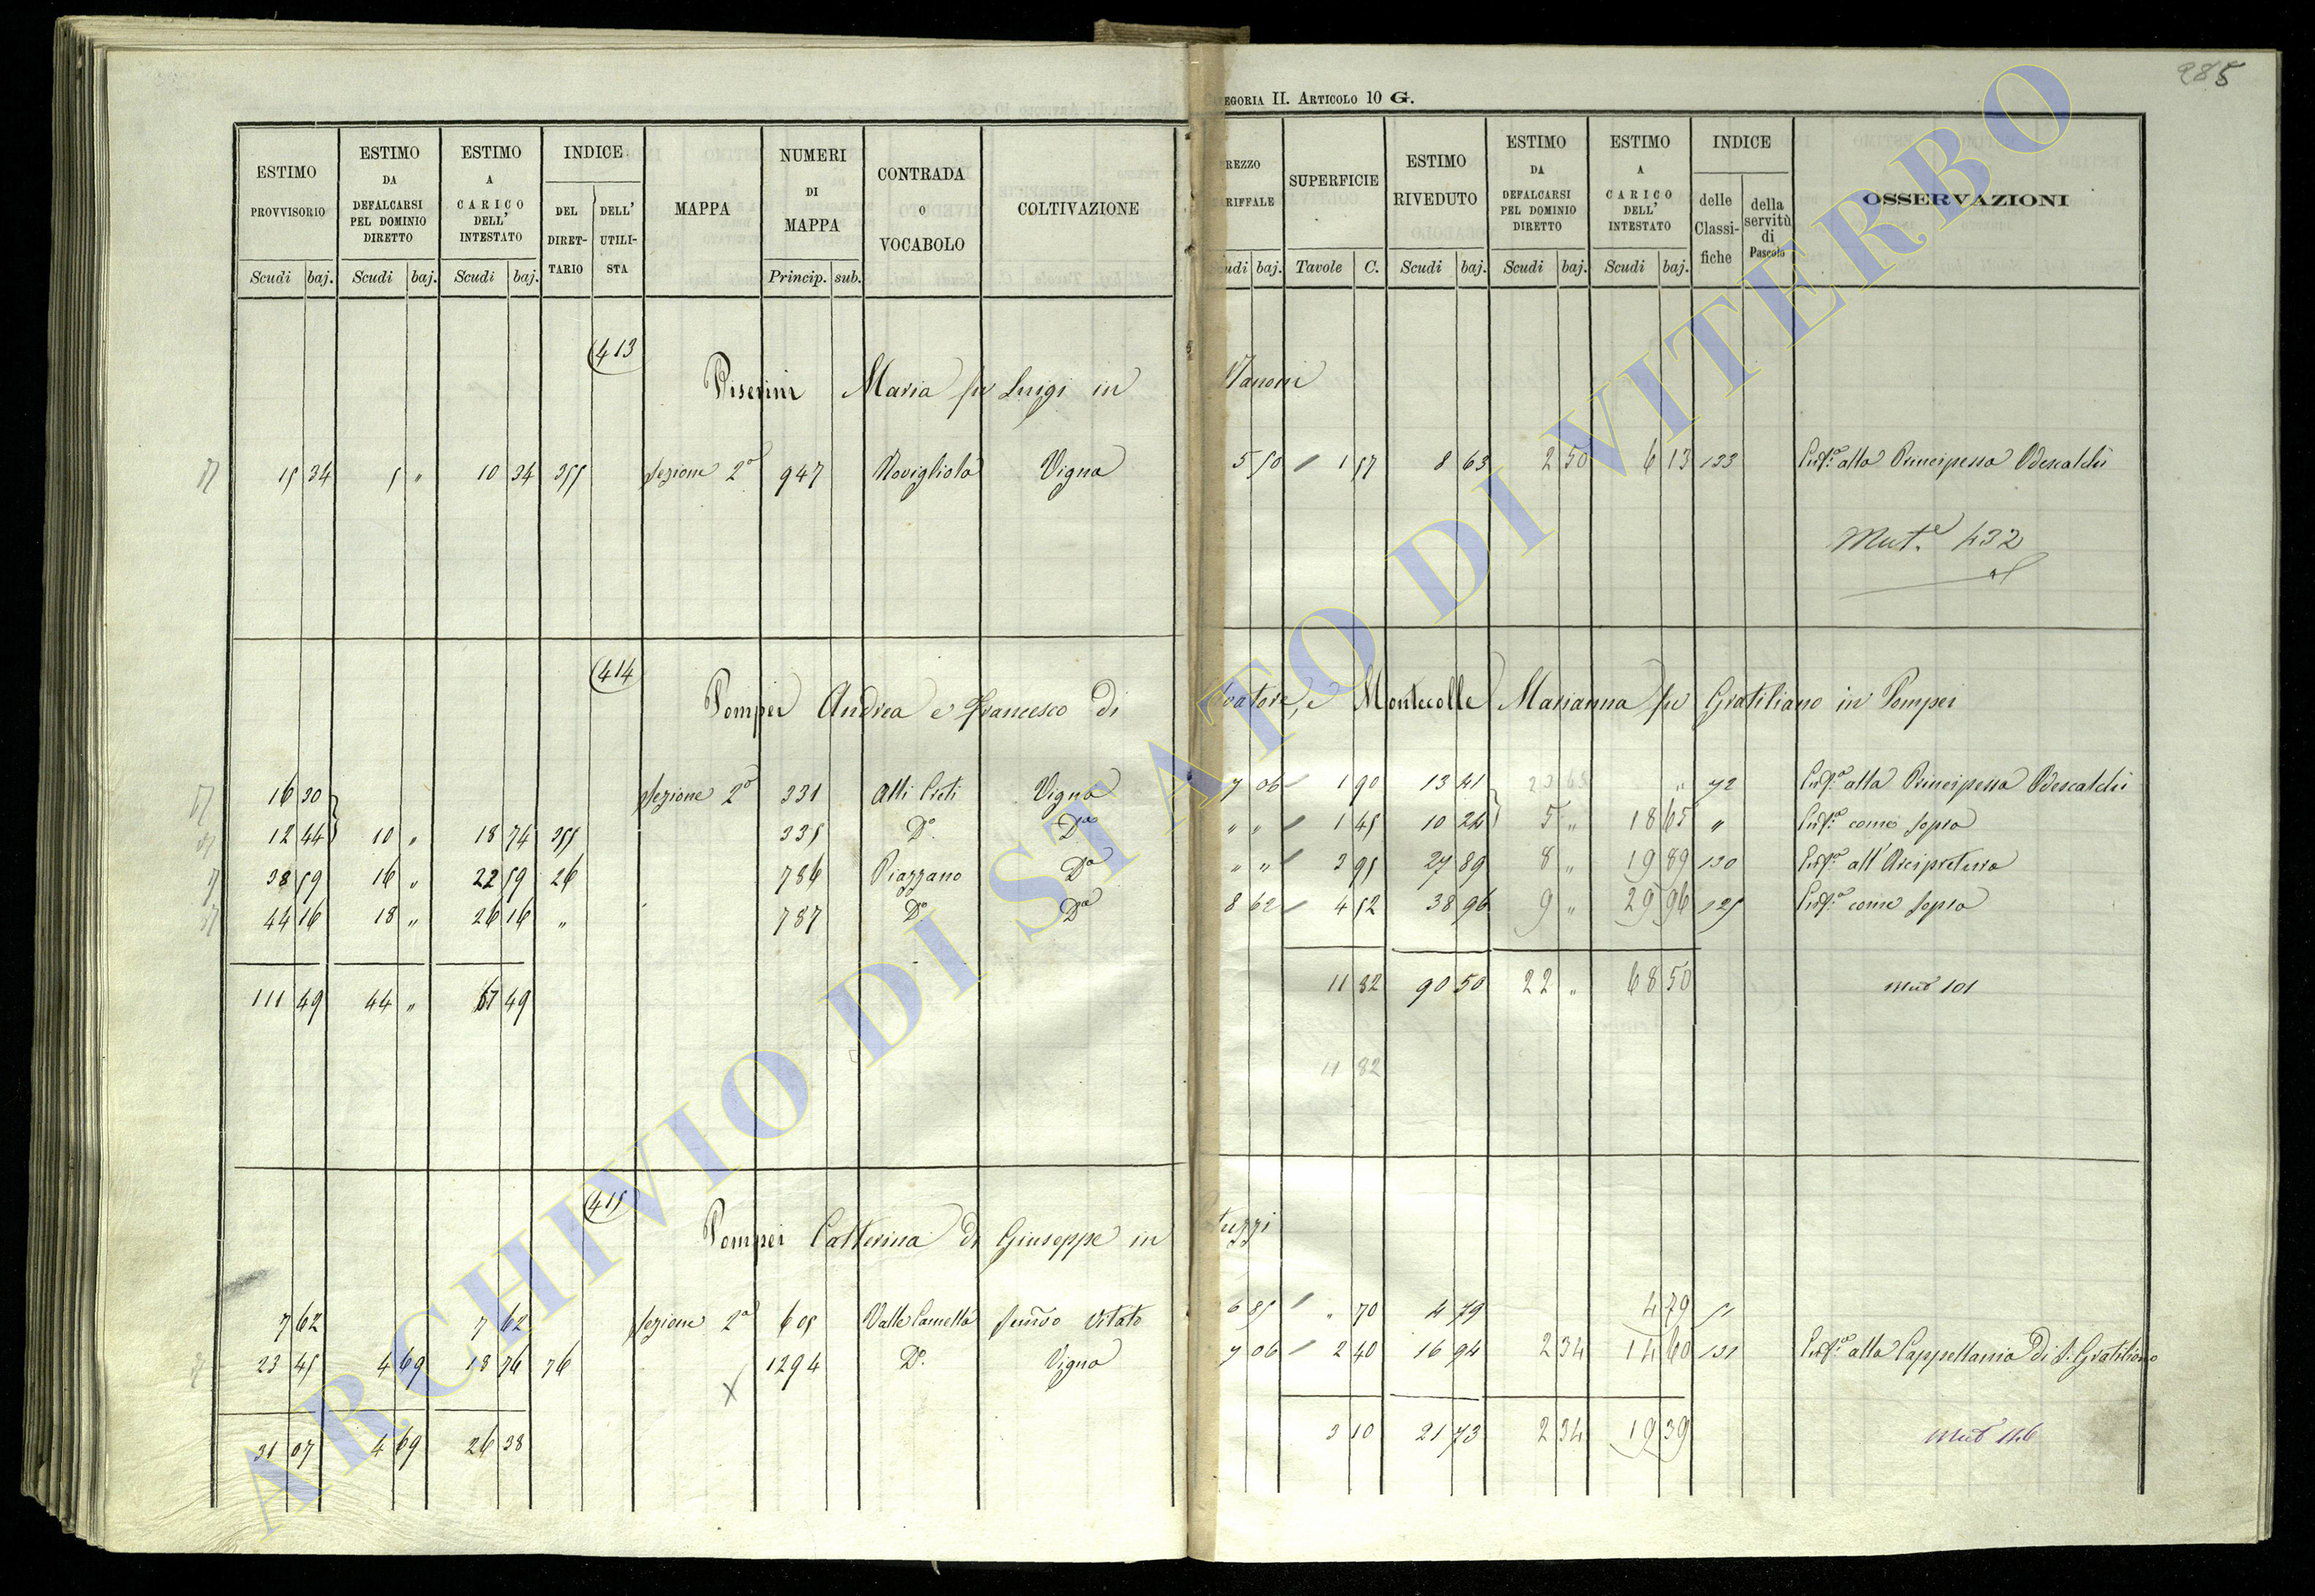 285
CATEGORIA II. ARTICOLO 10 G.
ESTIMO PROVVISORIO Scudi baj. ESTIMO DA DEFALCARSI PEL DOMINIO DIRETTO Scudi baj. ESTIMO A CARICO DELL' INTESTATO Scudi baj. INDICE DEL DIRET-TARIO DELL' UTILI-STA MAPPA NUMERI DI MAPPA Princip. sub. CONTRADA O VOCABOLO COLTIVAZIONE
REZZO RIFFALE udi baj. SUPERFICIE Tavole C. ESTIMO RIVEDUTO Scudi baj. ESTIMO DA DEFALCARSI PEL DOMINIO DIRETTO Scudi baj. ESTIMO A CARICO DELL' INTESTATO Scudi baj. INDICE delle Classi-fiche della servitù di Pascolo OSSERVAZIONI
413
Piserini Maria fu Luigi in Nanoni
15 34 5 " 10 34 355 Sezione 2a 947 Novigliola Vigna 5 50 1 57 8 63 2 50 6 13 133 alla Principessa Odescalchi
Mut.e 432
414
Pompei Andrea e Francesco di vatore, e Montecolle Marianna fu Gratiliano in Pompei
16 30 Sezione 2a 331 Alli Creti Vigna 7 06 1 90 13 41 " 72 alla Principessa Odescalchi
12 44 10 " 18 74 355 335 Do. Da " " 1 45 10 24 5 " 18 65 " come sopra
38 59 16 " 22 59 26 786 Piazzano Da " " 3 95 27 89 8 " 19 89 130 all'Arcipretura
44 16 18 " 26 16 " 787 Do Da 8 62 4 52 38 96 9 " 29 96 125 come sopra
111 49 44 " 67 49 11 82 90 50 22 " 68 50 Mut 101
11 82
415
Pompei Catterina di Giuseppe in tuzzi
7 62 7 62 Sezione 2a 605 Valle Camella Semivo Vitato 6 85 " 70 4 79 4 79 51
23 45 4 69 18 76 76 1294 Do. Vigna 7 06 2 40 16 94 2 34 14 60 131 alla Cappellania di S. Gratiliano
X
31 07 4 69 26 38 3 10 21 73 2 34 19 39 Mut 146
ARCHIVIO DI STATO DI VITERBO